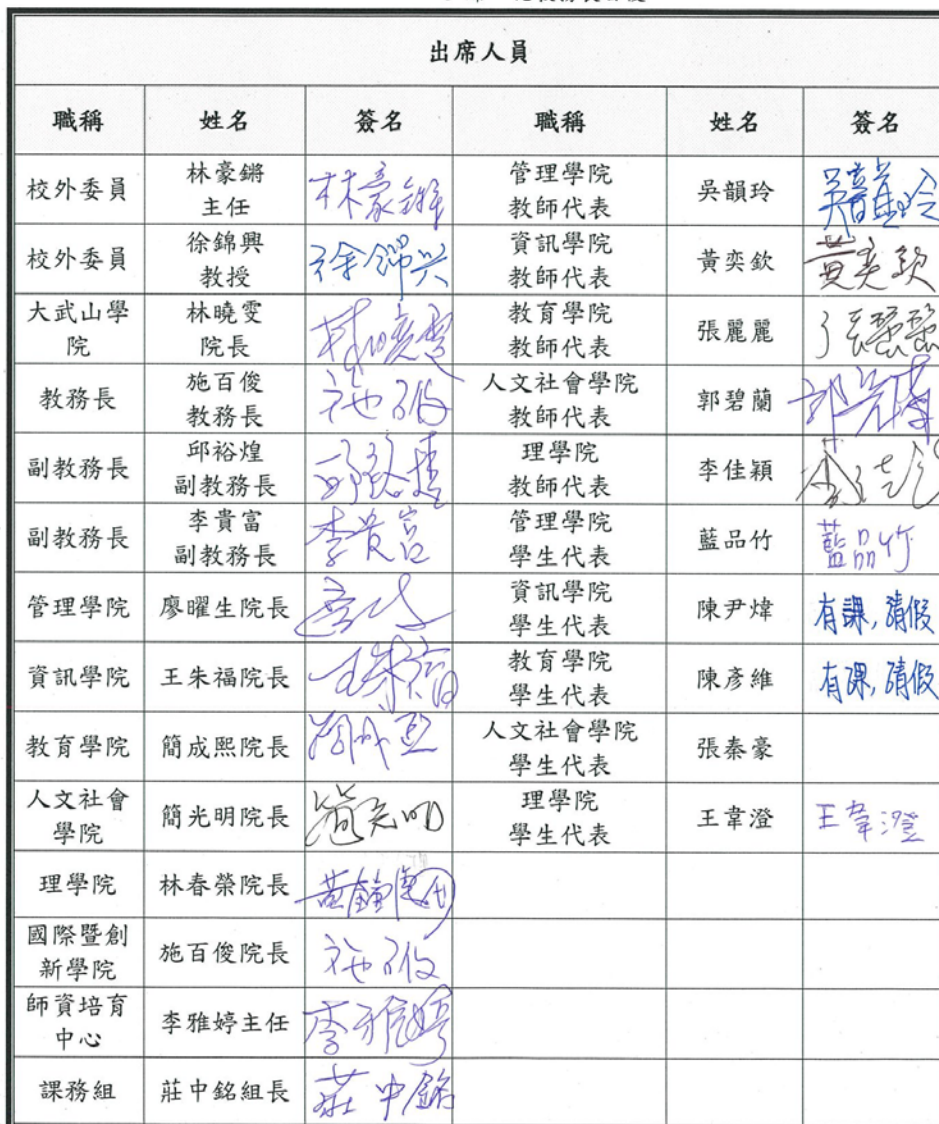 出席人員
職稱 姓名 簽名 職稱 姓名 簽名
校外委員 林豪鏘 主任 林豪鏘 管理學院 教師代表 吳韻玲 吳韻玲
校外委員 徐錦興 教授 徐錦兴 資訊學院 教師代表 黃奕欽 黃奕欽
大武山學院 林曉雯 院長 林曉雯 教育學院 教師代表 張麗麗 張麗麗
教務長 施百俊 教務長 施百俊 人文社會學院 教師代表 郭碧蘭
副教務長 邱裕煌 副教務長 理學院 教師代表 李佳穎
副教務長 李貴富 副教務長 李貴富 管理學院 學生代表 藍品竹 藍品竹
管理學院 廖曜生院長 資訊學院 學生代表 陳尹煒 有課,請假
資訊學院 王朱福院長 教育學院 學生代表 陳彥維 有課,請假
教育學院 簡成熙院長 簡成熙 人文社會學院 學生代表 張秦豪
人文社會學院 簡光明院長 簡光明 理學院 學生代表 王韋澄 王韋澄
理學院 林春榮院長
國際暨創新學院 施百俊院長 施百俊
師資培育中心 李雅婷主任 李雅婷
課務組 莊中銘組長 莊中銘